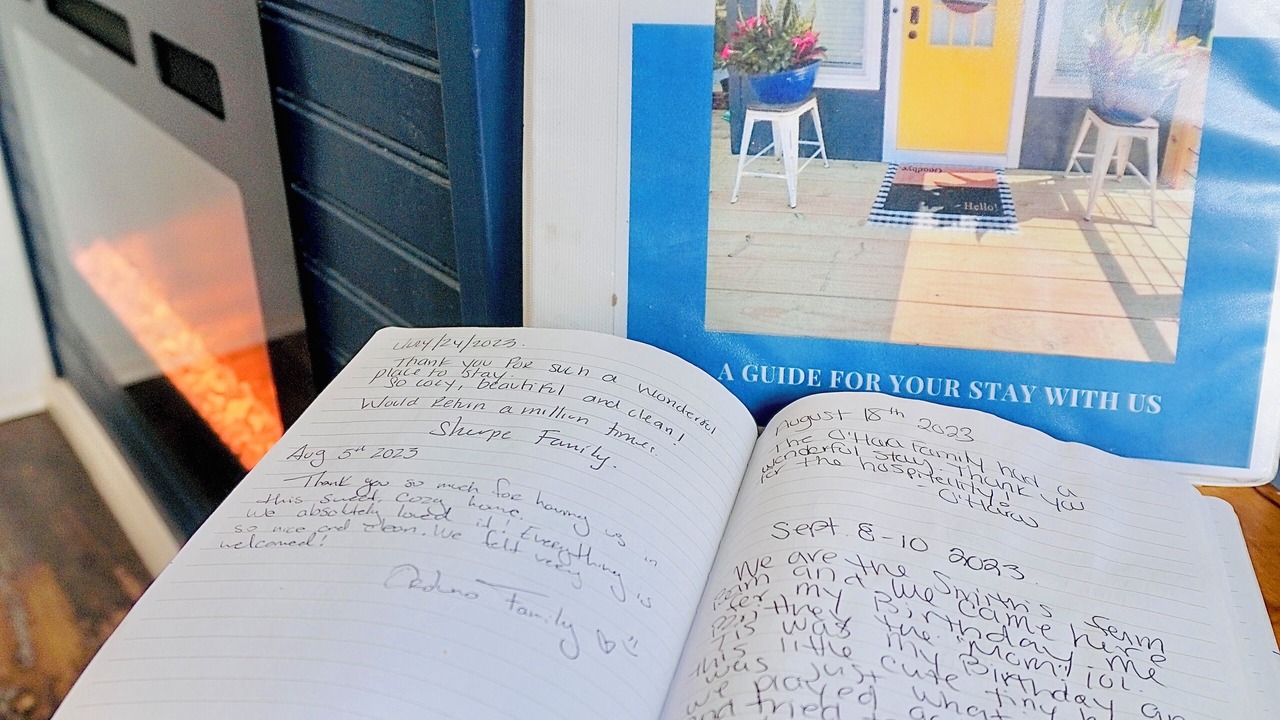 Goodbye
Hello!
A GUIDE FOR YOUR STAY WITH US
July/24/2023.
Thank you for such a wonderful
place to stay.
So cozy, beautiful and clean!
Would return a million times.
Sharpe Family.
Aug 5th 2023
Thank you so much for having us in
this sweet cozy home.
We absolutely loved it! Everything is
so nice and clean. We felt very
welcomed!
Family
August 18th 2023
The O'Hara Family had a
wonderful stay. Thank you
for the hospitality!
O'Haras
Sept. 8-10 2023.
We are the Smith's
and we came here
my Birthday. me
the Mom! lol.
was my Birthday
this little
was just cute
we played what tiny
and tried